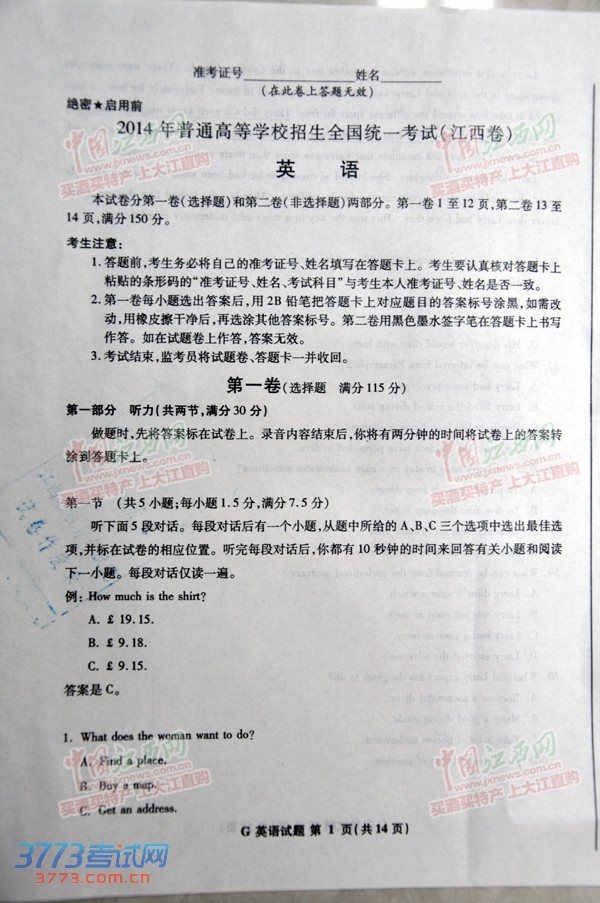 准考证号____________姓名________
(在此卷上答题无效)
绝密★启用前
2014年普通高等学校招生全国统一考试(江西卷)
英 语
本试卷分第一卷(选择题)和第二卷(非选择题)两部分。第一卷1至12页,第二卷13至
14页,满分150分。
考生注意:
1.答题前,考生务必将自己的准考证号、姓名填写在答题卡上。考生要认真核对答题卡上
粘贴的条形码的“准考证号、姓名、考试科目”与考生本人准考证号、姓名是否一致。
2.第一卷每小题选出答案后,用2B铅笔把答题卡上对应题目的答案标号涂黑,如需改
动,用橡皮擦干净后,再选涂其他答案标号。第二卷用黑色墨水签字笔在答题卡上书写
作答。如在试题卷上作答,答案无效。
3.考试结束,监考员将试题卷、答题卡一并收回。
第一卷(选择题 满分115分)
第一部分 听力(共两节,满分30分)
做题时,先将答案标在试卷上。录音内容结束后,你将有两分钟的时间将试卷上的答案转
涂到答题卡上。
第一节 (共5小题;每小题1.5分,满分7.5分)
听下面5段对话。每段对话后有一个小题,从题中所给的A、B、C三个选项中选出最佳选
项,并标在试卷的相应位置。听完每段对话后,你都有10秒钟的时间来回答有关小题和阅读
下一小题。每段对话仅读一遍。
例: How much is the shirt?
A. £ 19.15.
B. £ 9.18.
C. £ 9.15.
答案是C。
1. What does the woman want to do?
A. Find a place.
B. Buy a map.
C. Get an address.
G 英语试题 第 1 页(共14页)
中国江西网
买酒买特产 上大江直购
3773考试网
3773.com.cn